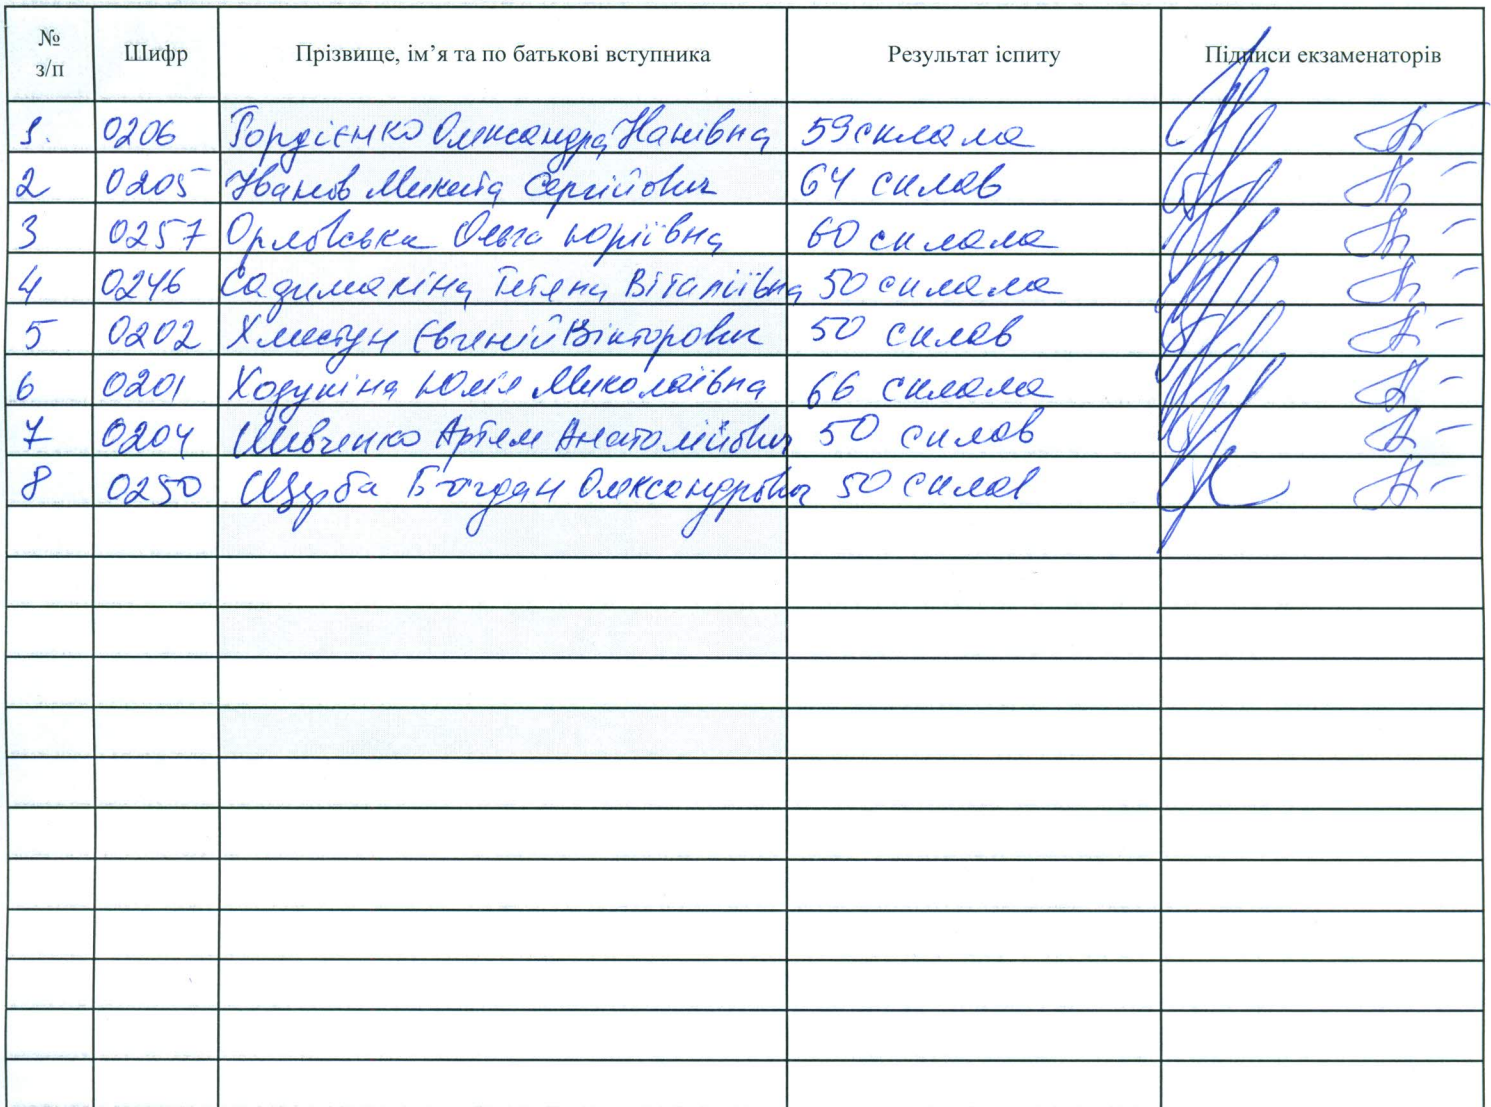 № з/п Шифр Прізвище, ім’я та по батькові вступника Результат іспиту Підписи екзаменаторів
1. 0206 Гордієнко Олександра Іванівна 59 склала
2 0205 Іванов Микита Сергійович 64 склав
3 0257 Орловська Ольга Юріївна 60 склала
4 0246 Тетяна Віталіївна 50 склала
5 0202 Хлистун Євгеній Вікторович 50 склав
6 0201 Ходукіна Юлія Миколаївна 66 склала
7 0204 Шевченко Артем Анатолійович 50 склав
8 0250 Щерба Богдан Олександрович 50 склав